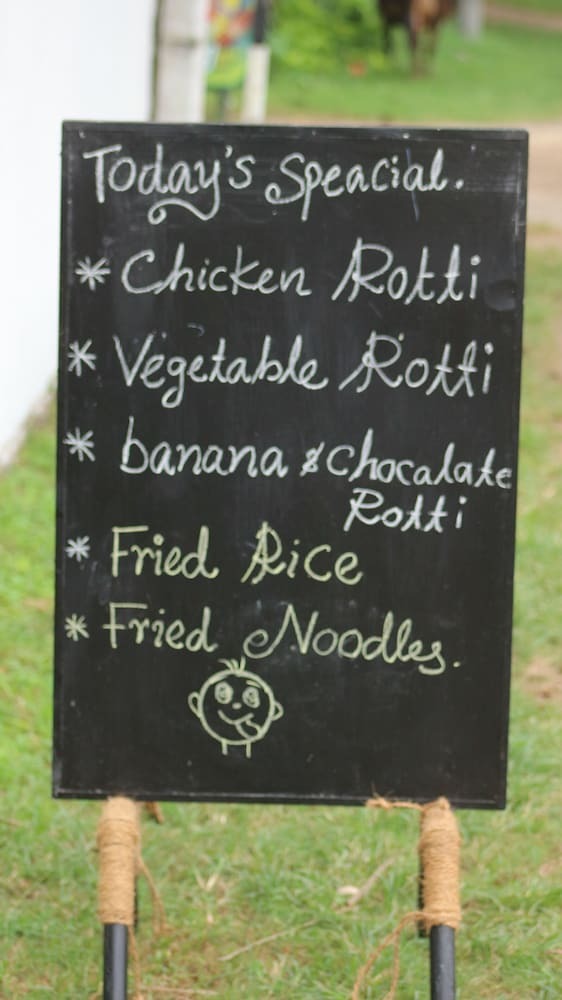 Today's Speacial.
* Chicken Rotti
* Vegetable Rotti
* banana & chocalate
Rotti
* Fried Rice
* Fried Noodles.